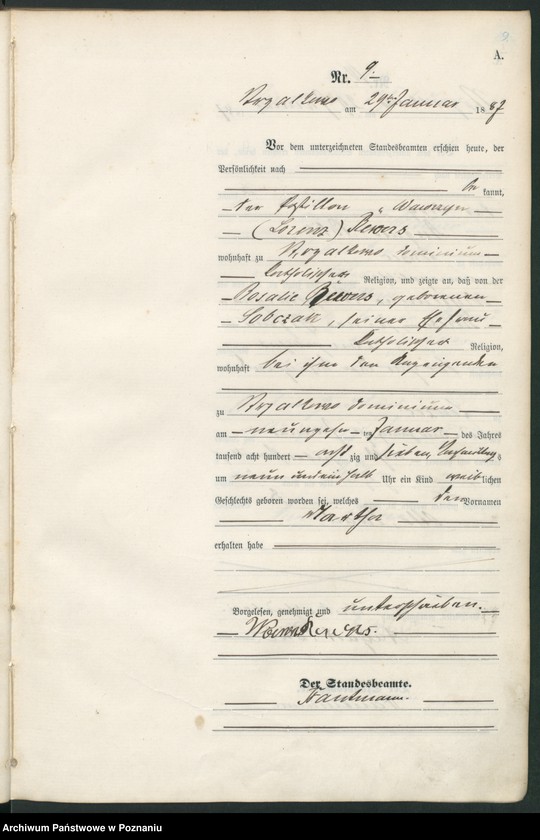 9
A.
Nr. 9.
Strzalkowo am 29ten Januar 1887
Vor dem unterzeichneten Standesbeamten erschien heute, der
Persönlichkeit nach
be kannt,
der Postillon Wawrzyn
(Lorenz) Rewers
wohnhaft zu Strzalkowo dominium
katholischer Religion, und zeigte an, daß von der
Rosalie Rewers, geborenen
Sobczak, seiner Ehefrau
katholischer Religion,
wohnhaft bei ihm dem Anzeigenden
zu Strzalkowo dominium
am neunzehn ten Januar des Jahres
tausend acht hundert acht zig und sieben, Vormittags
um neun und ein halb Uhr ein Kind weib lichen
Geschlechts geboren worden sei, welches den Vornamen
Martha
erhalten habe
Vorgelesen, genehmigt und unterschrieben.
Rewers.
Der Standesbeamte.
Archiwum Państwowe w Poznaniu